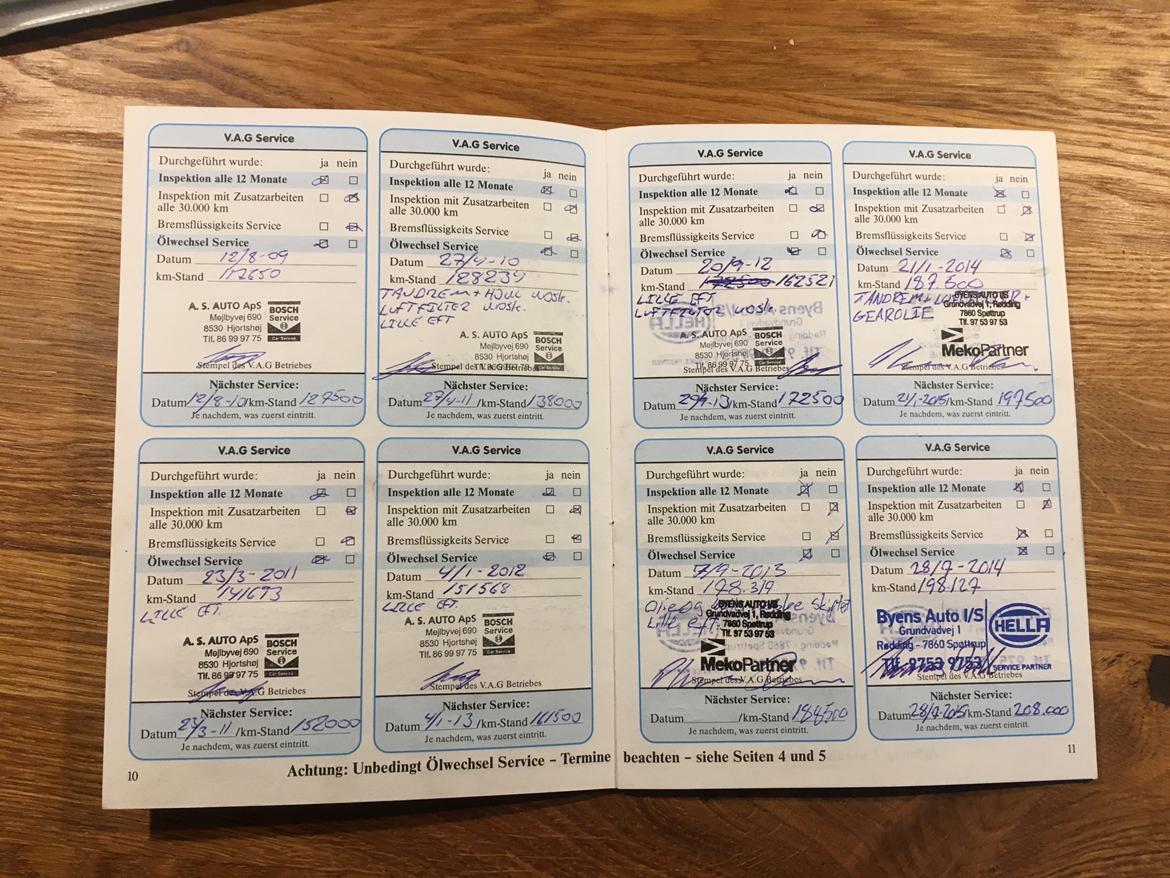 V.A.G Service
Durchgeführt wurde: ja nein
Inspektion alle 12 Monate
Inspektion mit Zusatzarbeiten
alle 30.000 km
Bremsflüssigkeits Service
Ölwechsel Service
Datum 12/8-09
km-Stand 117650
A. S. AUTO ApS
Mejlbyvej 690
8530 Hjortshøj
Tlf. 86 99 97 75
BOSCH
Service
Car Service
Stempel des V.A.G Betriebes
Nächster Service:
Datum 12/8-10/km-Stand 127500
Je nachdem, was zuerst eintritt.
V.A.G Service
Durchgeführt wurde: ja nein
Inspektion alle 12 Monate
Inspektion mit Zusatzarbeiten
alle 30.000 km
Bremsflüssigkeits Service
Ölwechsel Service
Datum 27/4-10
km-Stand 128239
TANDREM + HJUL UDSK.
LUFTFILTER UDSK.
LILLE EFT
A. S. AUTO ApS
Mejlbyvej 690
8530 Hjortshøj
BOSCH
Service
Stempel des V.A.G Betriebes
Nächster Service:
Datum 27/4-11/km-Stand 138000
Je nachdem, was zuerst eintritt.
V.A.G Service
Durchgeführt wurde: ja nein
Inspektion alle 12 Monate
Inspektion mit Zusatzarbeiten
alle 30.000 km
Bremsflüssigkeits Service
Ölwechsel Service
Datum 20/9-12
km-Stand 162521
LILLE EFT
LUFTFILTER UDSK.
A. S. AUTO ApS
Mejlbyvej 690
8530 Hjortshøj
Tlf. 86 99 97 75
BOSCH
Service
Stempel des V.A.G Betriebes
Nächster Service:
Datum /km-Stand 172500
Je nachdem, was zuerst eintritt.
V.A.G Service
Durchgeführt wurde: ja nein
Inspektion alle 12 Monate
Inspektion mit Zusatzarbeiten
alle 30.000 km
Bremsflüssigkeits Service
Ölwechsel Service
Datum 21/1-2014
km-Stand 187.500
TANDREM +
GEAROLIE
BYENS AUTO I/S
Grundvadvej 1, Rødding
7860 Spøttrup
Tlf. 97 53 97 53
MekoPartner
Stempel des V.A.G Betriebes
Nächster Service:
Datum 21/1-2015/km-Stand 197500
Je nachdem, was zuerst eintritt.
V.A.G Service
Durchgeführt wurde: ja nein
Inspektion alle 12 Monate
Inspektion mit Zusatzarbeiten
alle 30.000 km
Bremsflüssigkeits Service
Ölwechsel Service
Datum 23/3-2011
km-Stand 141673
LILLE EFT.
A. S. AUTO ApS
Mejlbyvej 690
8530 Hjortshøj
Tlf. 86 99 97 75
BOSCH
Service
Car Service
Stempel des V.A.G Betriebes
Nächster Service:
Datum 23/3-11/km-Stand 152000
Je nachdem, was zuerst eintritt.
V.A.G Service
Durchgeführt wurde: ja nein
Inspektion alle 12 Monate
Inspektion mit Zusatzarbeiten
alle 30.000 km
Bremsflüssigkeits Service
Ölwechsel Service
Datum 4/1-2012
km-Stand 151568
LILLE EFT.
A. S. AUTO ApS
Mejlbyvej 690
8530 Hjortshøj
Tlf. 86 99 97 75
BOSCH
Service
Car Service
Stempel des V.A.G Betriebes
Nächster Service:
Datum 4/1-13/km-Stand 161500
Je nachdem, was zuerst eintritt.
V.A.G Service
Durchgeführt wurde: ja nein
Inspektion alle 12 Monate
Inspektion mit Zusatzarbeiten
alle 30.000 km
Bremsflüssigkeits Service
Ölwechsel Service
Datum /9-2013
km-Stand
Olie og Skiftet
Lille eft.
BYENS AUTO I/S
Grundvadvej 1, Rødding
7860 Spøttrup
Tlf. 97 53 97 53
MekoPartner
Stempel des V.A.G Betriebes
Nächster Service:
Datum /km-Stand 188500
Je nachdem, was zuerst eintritt.
V.A.G Service
Durchgeführt wurde: ja nein
Inspektion alle 12 Monate
Inspektion mit Zusatzarbeiten
alle 30.000 km
Bremsflüssigkeits Service
Ölwechsel Service
Datum 28/7-2014
km-Stand 198.127
Byens Auto I/S
Grundvadvej 1
Rødding - 7860 Spøttrup
Tlf. 9753 9753
HELLA
SERVICE PARTNER
Stempel des V.A.G Betriebes
Nächster Service:
Datum 28/7-2015/km-Stand 208.000
Je nachdem, was zuerst eintritt.
10
Achtung: Unbedingt Ölwechsel Service – Termine beachten – siehe Seiten 4 und 5
11